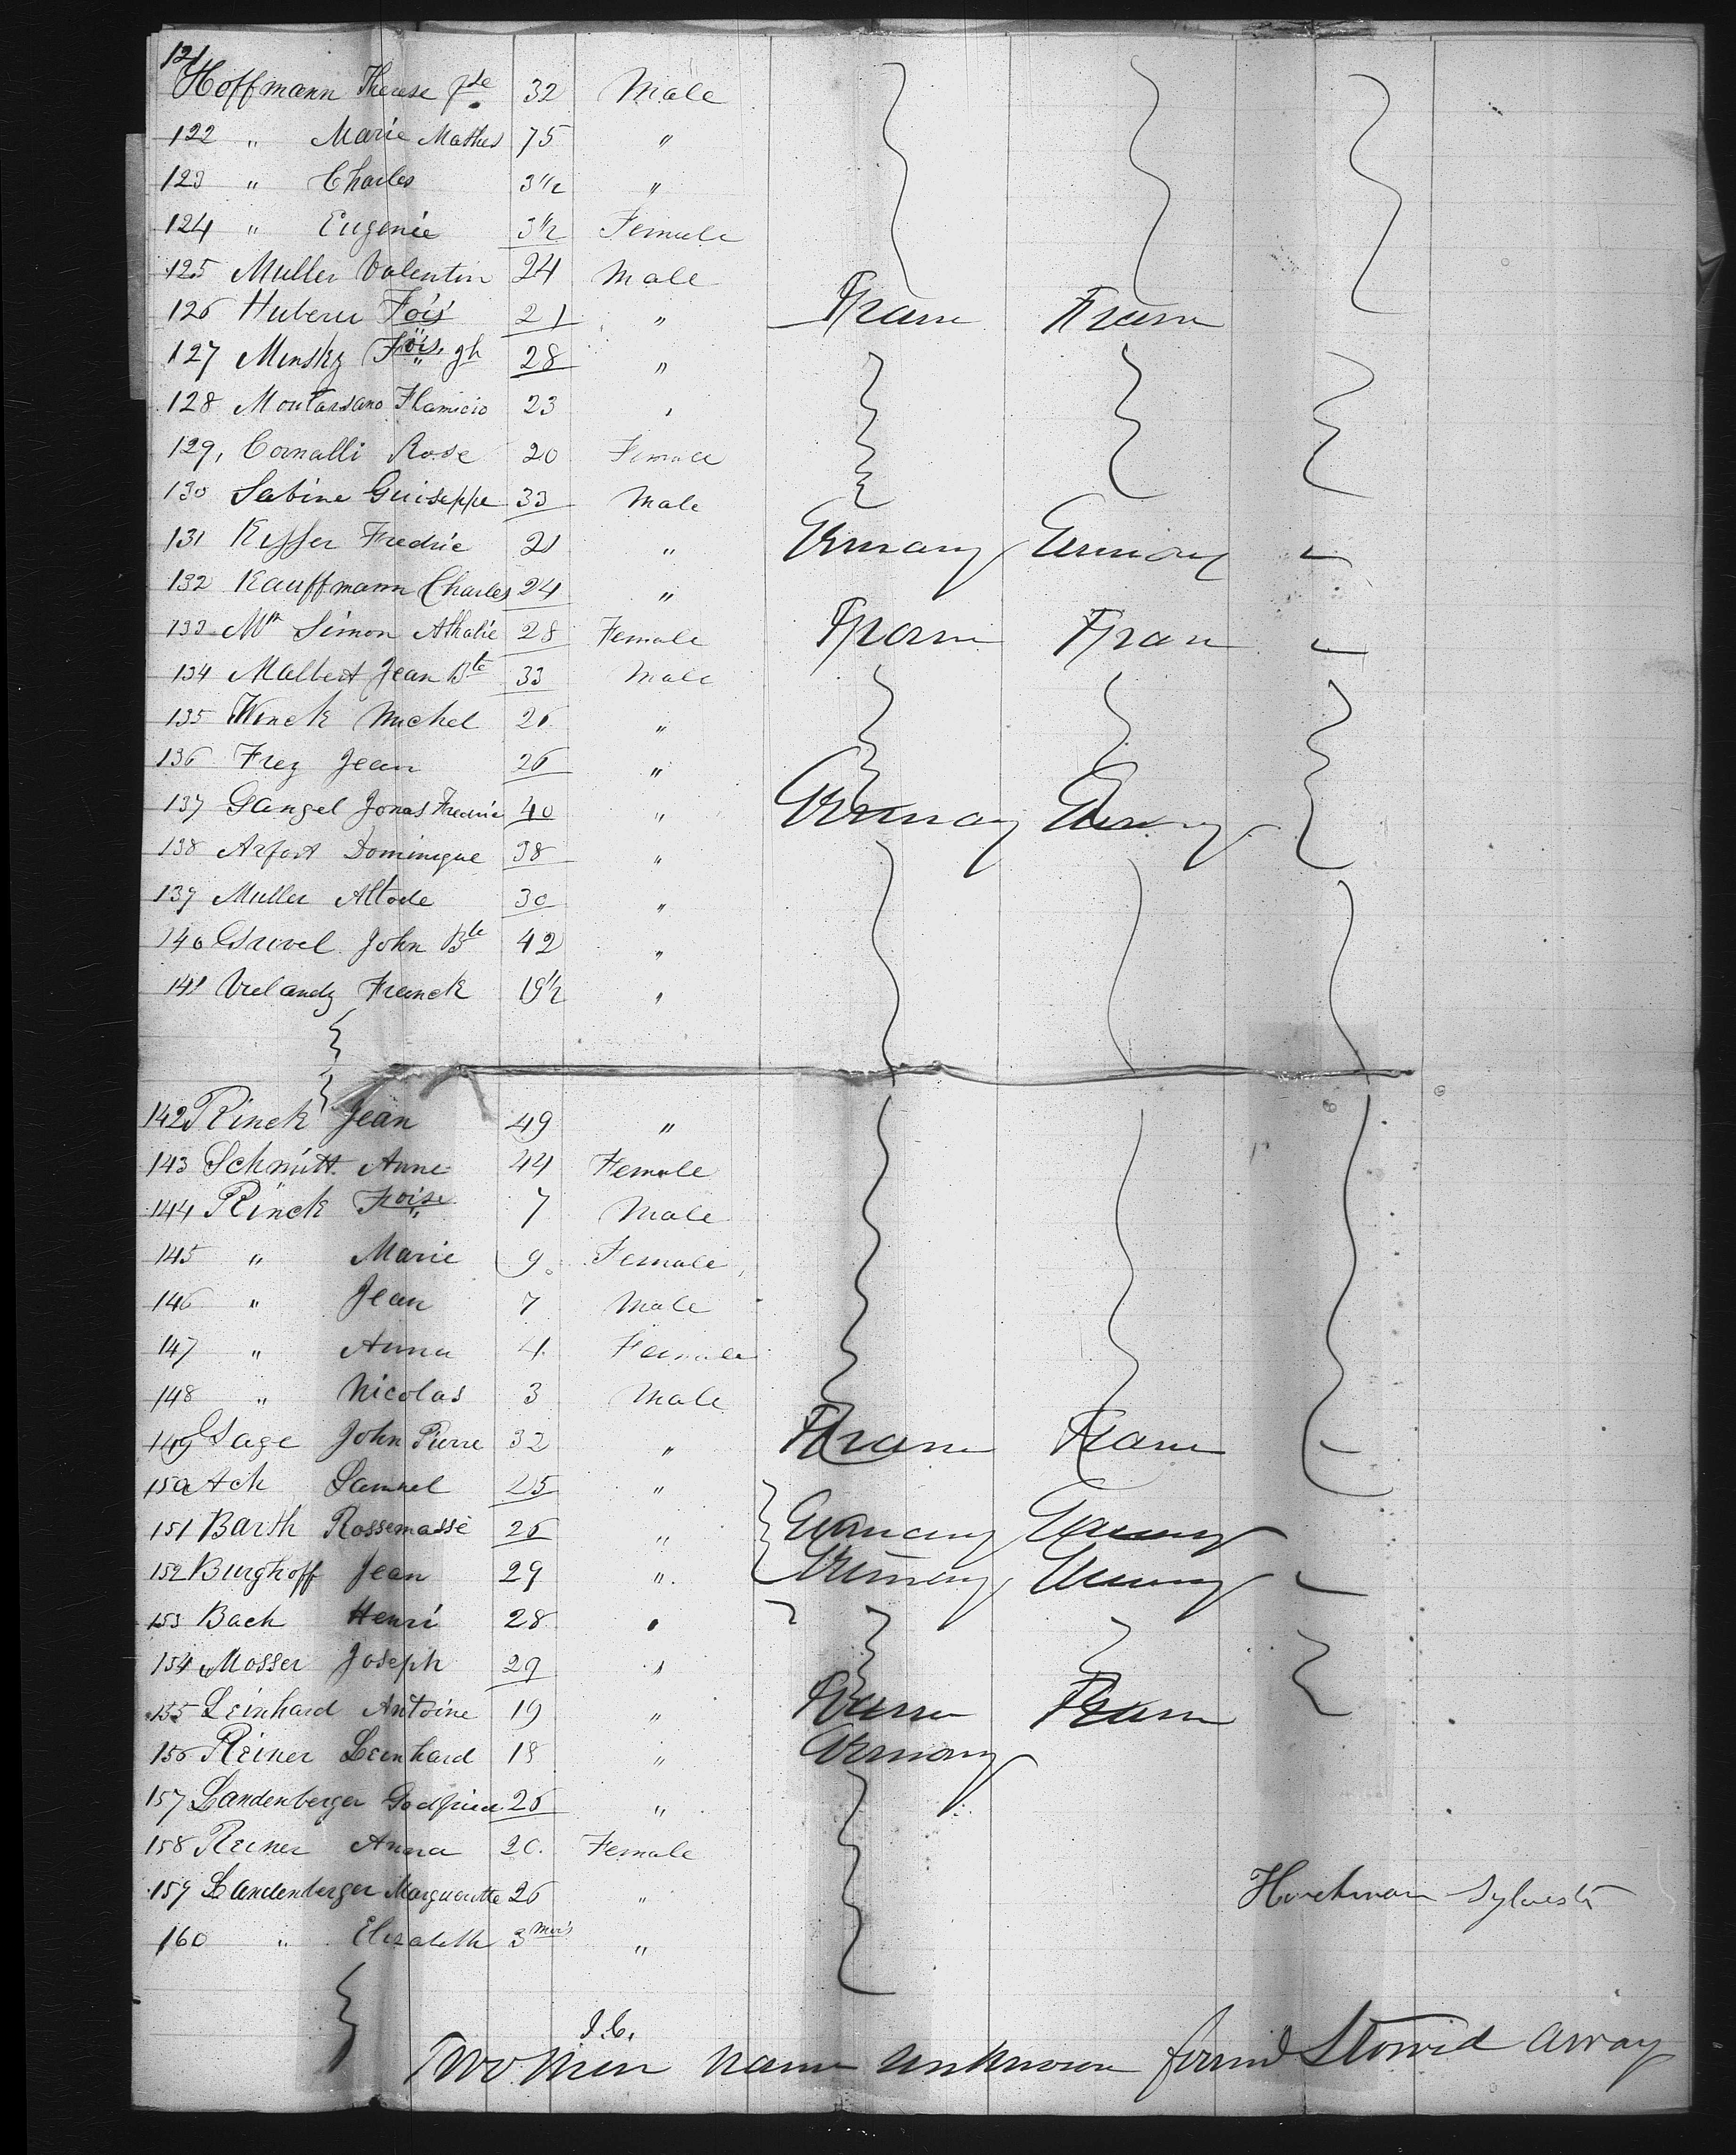 121
Hoffmann Therese 32 Male
122 " Marie Mathes 75 "
123 " Charles 3 1/2 "
124 " Eugenie 3 1/2 Female
125 Muller Valentin 24 Male
126 Huberu Fois 21 " Fran Fran
127 Minsky Fois 28 "
128 Montarsano Flamicio 23 "
129, Cornalli Rose 20 Female
130 Sabine Guiseppe 33 Male
131 Kisser Fredric 21 " Germany Germany
132 Kauffmann Charles 24 "
133 Simon Athalie 28 Female Fran Fran
134 Malbert Jean Bte 33 Male
135 Winck Michel 26 "
136 Frey Jean 26 "
137 Gangel Jonas Fredric 40 " Germany Germany
138 Arfort Dominique 38 "
139 Muller Altode 30 "
140 Grivel John Bte 42 "
141 Vrelandy Franck 19 1/2 "
142 Rinck Jean 49 "
143 Schmitt Anne 44 Female
144 Rinck Foise 7 Male
145 " Marie 9 Female
146 " Jean 7 Male
147 " Anna 4 Female
148 " Nicolas 3 Male
149 Sage John Pierre 32 " Fran Fran
150 Ach Samuel 25 "
151 Barth Rossemasse 26 " Germany Germany
152 Burghoff Jean 29 " Germany Germany
153 Bach Henri 28 "
154 Mosser Joseph 29 "
155 Leinhard Antoine 19 " Fran Fran
156 Reiner Leinhard 18 " Germany
157 Landenberger Godfried 26 "
158 Reiner Anna 20 Female
159 Landenberger Marguerite 26 "
Horchman Sylvest
160 " Elizabeth 3 Mois "
J.C.
Two Men name unknown found Stowed away